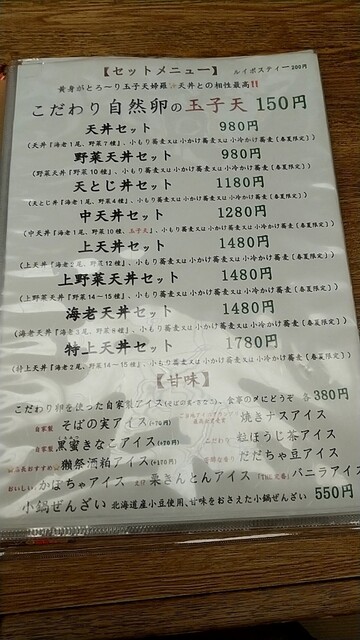 【セットメニュー】 ルイボスティー200円
黄身がとろ～り玉子天婦羅 天丼との相性最高!!
こだわり自然卵の玉子天 150円
天丼セット 980円
(天丼『海老1尾、野菜7種』、小もり蕎麦又は小かけ蕎麦又は小冷かけ蕎麦〔春夏限定〕)
野菜天丼セット 980円
(野菜天丼『野菜10種』、小もり蕎麦又は小かけ蕎麦又は小冷かけ蕎麦〔春夏限定〕)
天とじ丼セット 1180円
(天とじ丼『海老1尾、野菜4種』、小もり蕎麦又は小かけ蕎麦又は小冷かけ蕎麦〔春夏限定〕)
中天丼セット 1280円
(中天丼『海老1尾、野菜10種、玉子天』、小もり蕎麦又は小かけ蕎麦又は小冷かけ蕎麦〔春夏限定〕)
上天丼セット 1480円
(上天丼『海老2尾、野菜12種』、小もり蕎麦又は小かけ蕎麦又は小冷かけ蕎麦〔春夏限定〕)
上野菜天丼セット 1480円
(上野菜天丼『野菜14～15種』、小もり蕎麦又は小かけ蕎麦又は小冷かけ蕎麦〔春夏限定〕)
海老天丼セット 1480円
(海老天丼『海老3尾、野菜6種』、小もり蕎麦又は小かけ蕎麦又は小冷かけ蕎麦〔春夏限定〕)
特上天丼セット 1780円
(特上天丼『海老2尾、野菜14～15種』、小もり蕎麦又は小かけ蕎麦又は小冷かけ蕎麦〔春夏限定〕)
【甘味】
こだわり卵を使った自家製アイス(そばの実・きなこ)、食事の〆にどうぞ 各380円
自家製 そばの実アイス(+70円) 焼きナスアイス
自家製 黒蜜きなこアイス(+70円) 粒ほうじ茶アイス
店長おすすめ 獺祭酒粕アイス(+170円) だだちゃ豆アイス
おいしい かぼちゃアイス 栗きんとんアイス 『THE定番』バニラアイス
小鍋ぜんざい 北海道産小豆使用、甘味をおさえた小鍋ぜんざい 550円